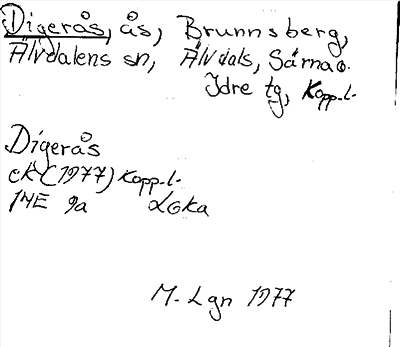 Digerås, ås, Brunnsberg,
Älvdalens sn, Älvdals, Särna o.
Idre tg, Kopp.l.
Digerås
ek (1977) Kopp.l.
14E 9a LGka
M. Lgn 1977